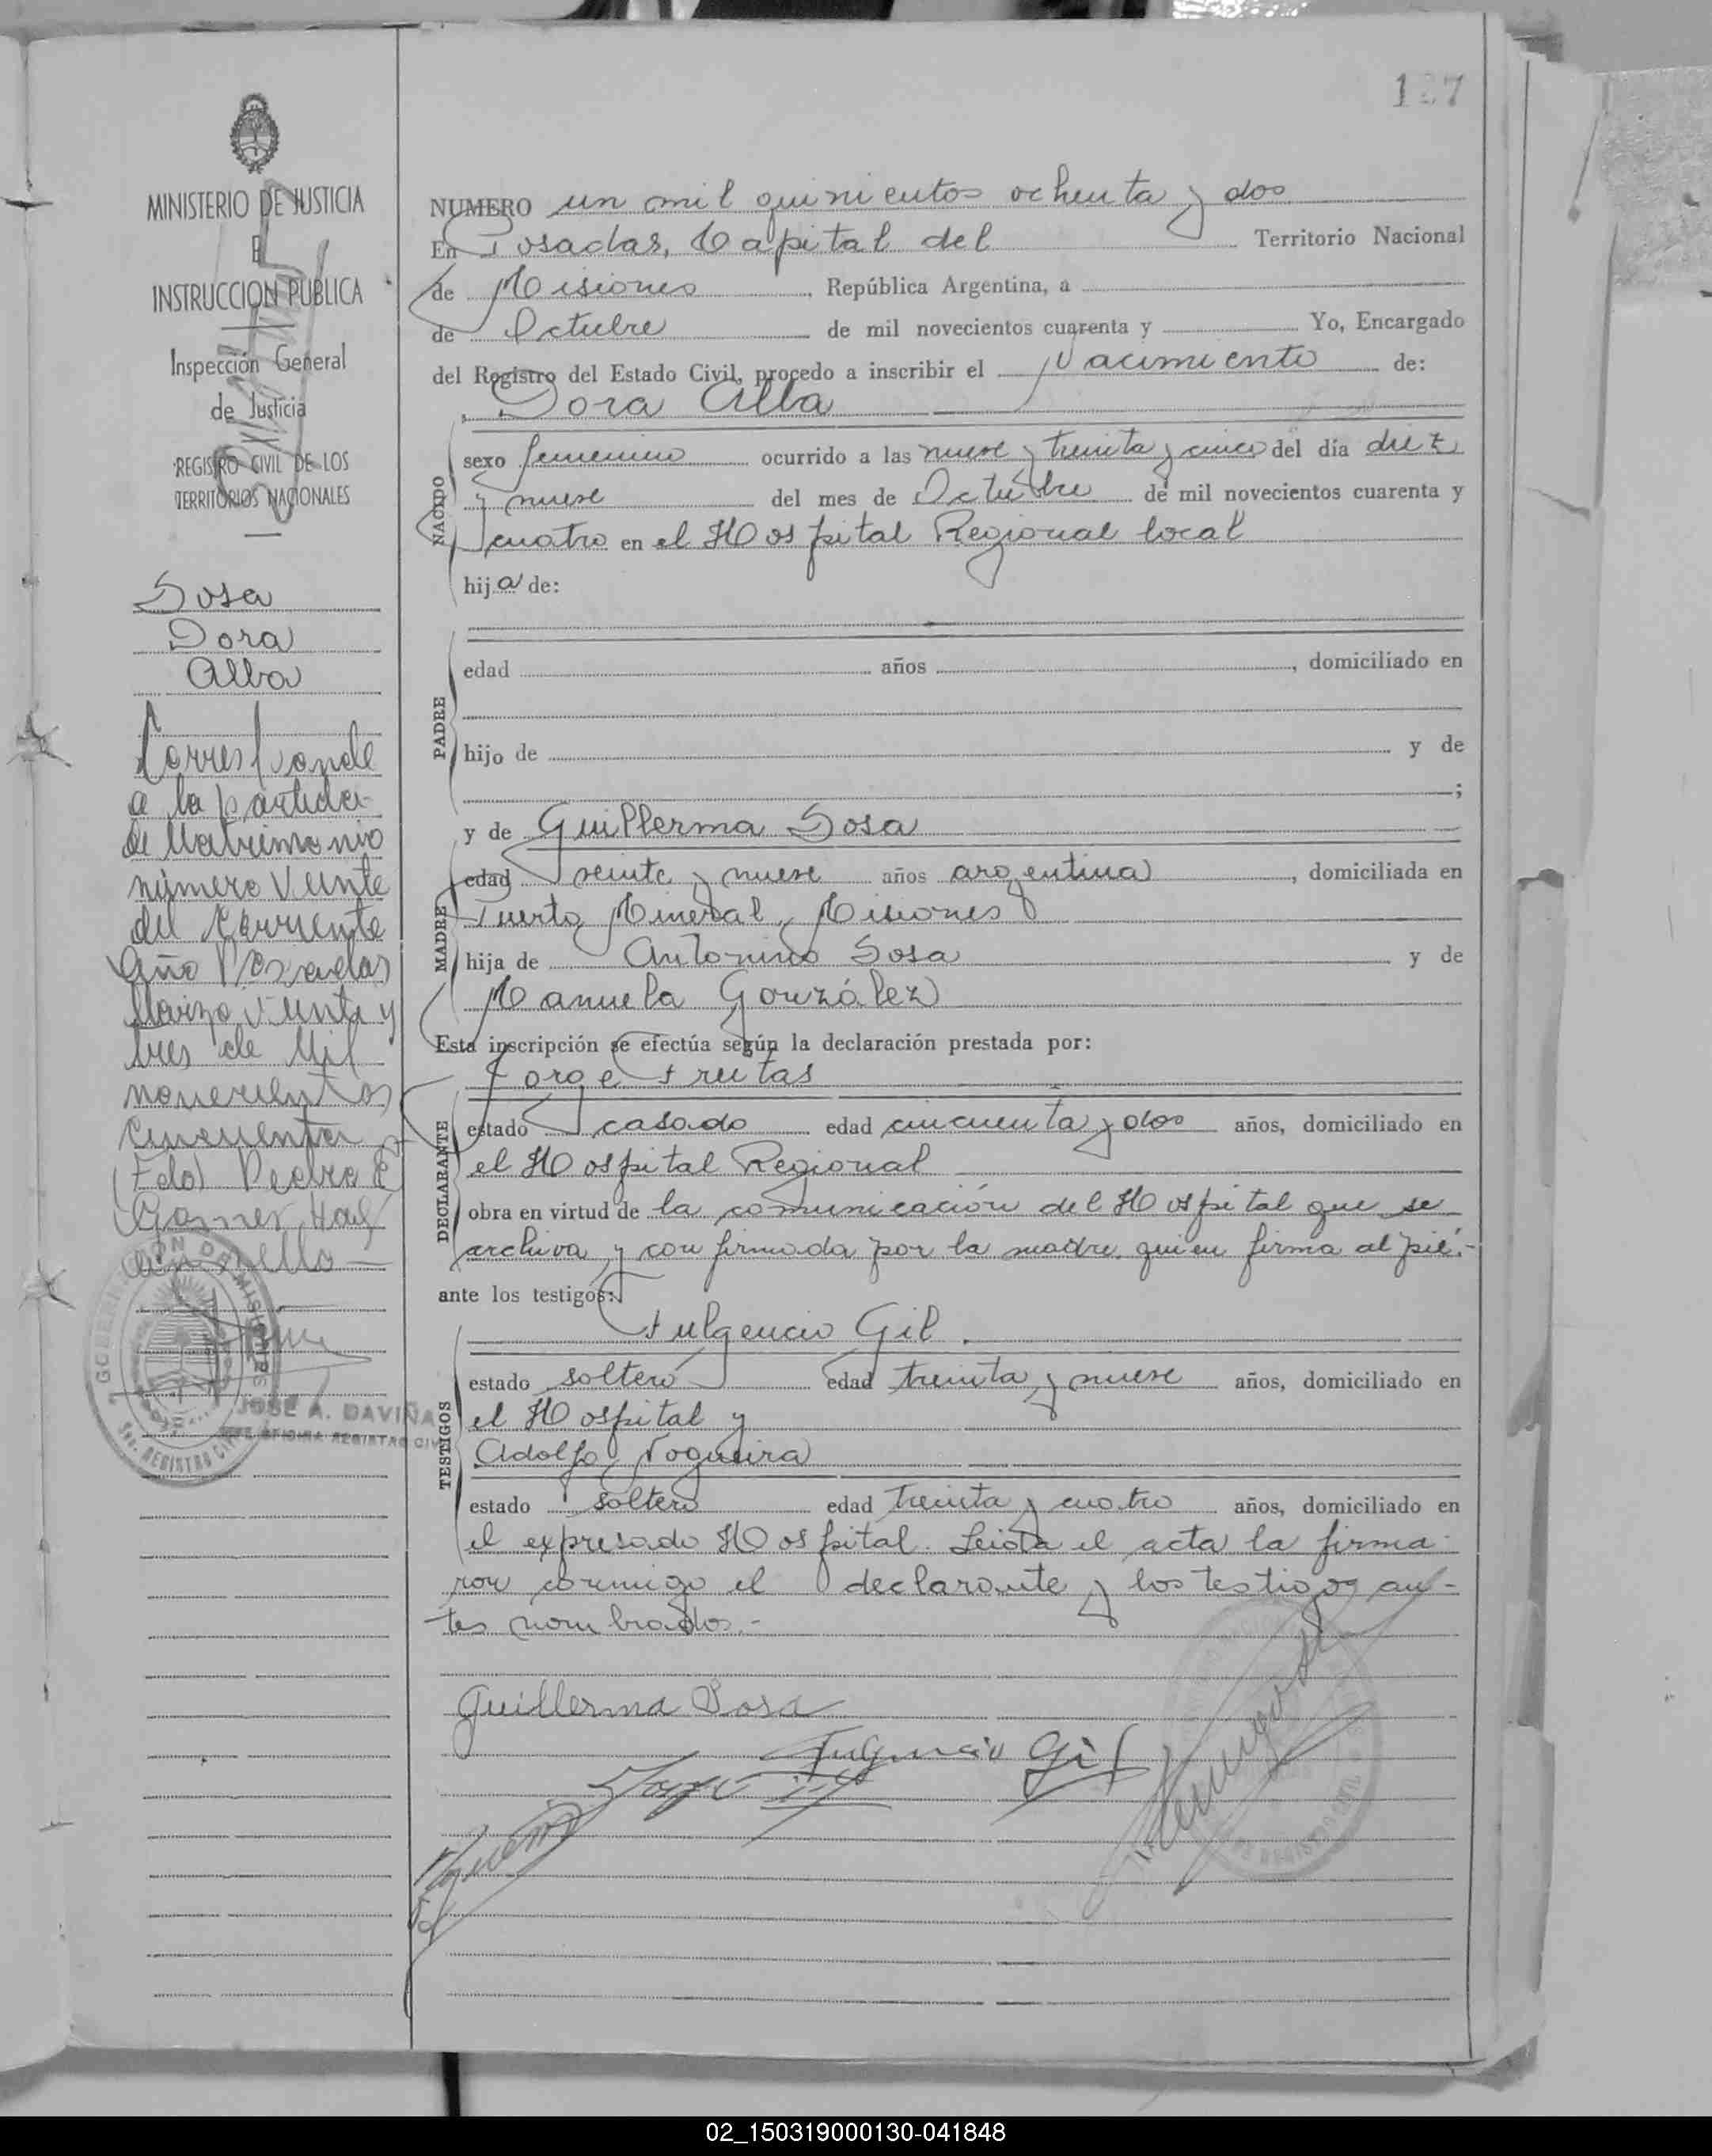 127
MINISTERIO DE JUSTICIA
E
INSTRUCCION PUBLICA
Inspección General
de Justicia
REGISTRO CIVIL DE LOS
TERRITORIOS NACIONALES
Sosa
Dora
Alba
Corresponde
a la partida
de Matrimonio
número Veinte
del Corriente
Año Posadas
Marzo Veinte y
tres de Mil
novecientos
cincuenta
(Fdo) Pedro E
Gomez Hay
un sello —
GOBERNACIÓN DE MISIONES
REGISTRO CIVIL
JOSE A. DAVIÑA
JEFE OFICINA REGISTRO CIVIL
NUMERO un mil quinientos ochenta y dos
En Posadas, Capital del Territorio Nacional
de Misiones República Argentina, a
de Octubre de mil novecientos cuarenta y Yo, Encargado
del Registro del Estado Civil, procedo a inscribir el Nacimiento de:
Dora Alba
NACIDO
sexo femenino ocurrido a las nueve y treinta y cinco del día diez
y nueve del mes de Octubre de mil novecientos cuarenta y
cuatro en el Hospital Regional local
hija de:
PADRE
edad años , domiciliado en
hijo de y de
;
MADRE
y de Guillerma Sosa
edad veinte y nueve años argentina , domiciliada en
Puerto Mineral, Misiones
hija de Antonino Sosa y de
Manuela González
Esta inscripción se efectúa según la declaración prestada por:
Jorge Frutas
DECLARANTE
estado casado edad cincuenta y dos años, domiciliado en
el Hospital Regional
obra en virtud de la comunicación del Hospital que se
archiva y confirmada por la madre quien firma al pié.-
ante los testigos:
Fulgencio Gil
TESTIGOS
estado soltero edad treinta y nueve años, domiciliado en
el Hospital y
Adolfo Nogueira
estado soltero edad treinta y cuatro años, domiciliado en
el expresado Hospital. Leida el acta la firma
ron conmigo el declarante y los testigos an-
tes nombrados.-
Guillerma Sosa
Fulgencio Gil
02_150319000130-041848